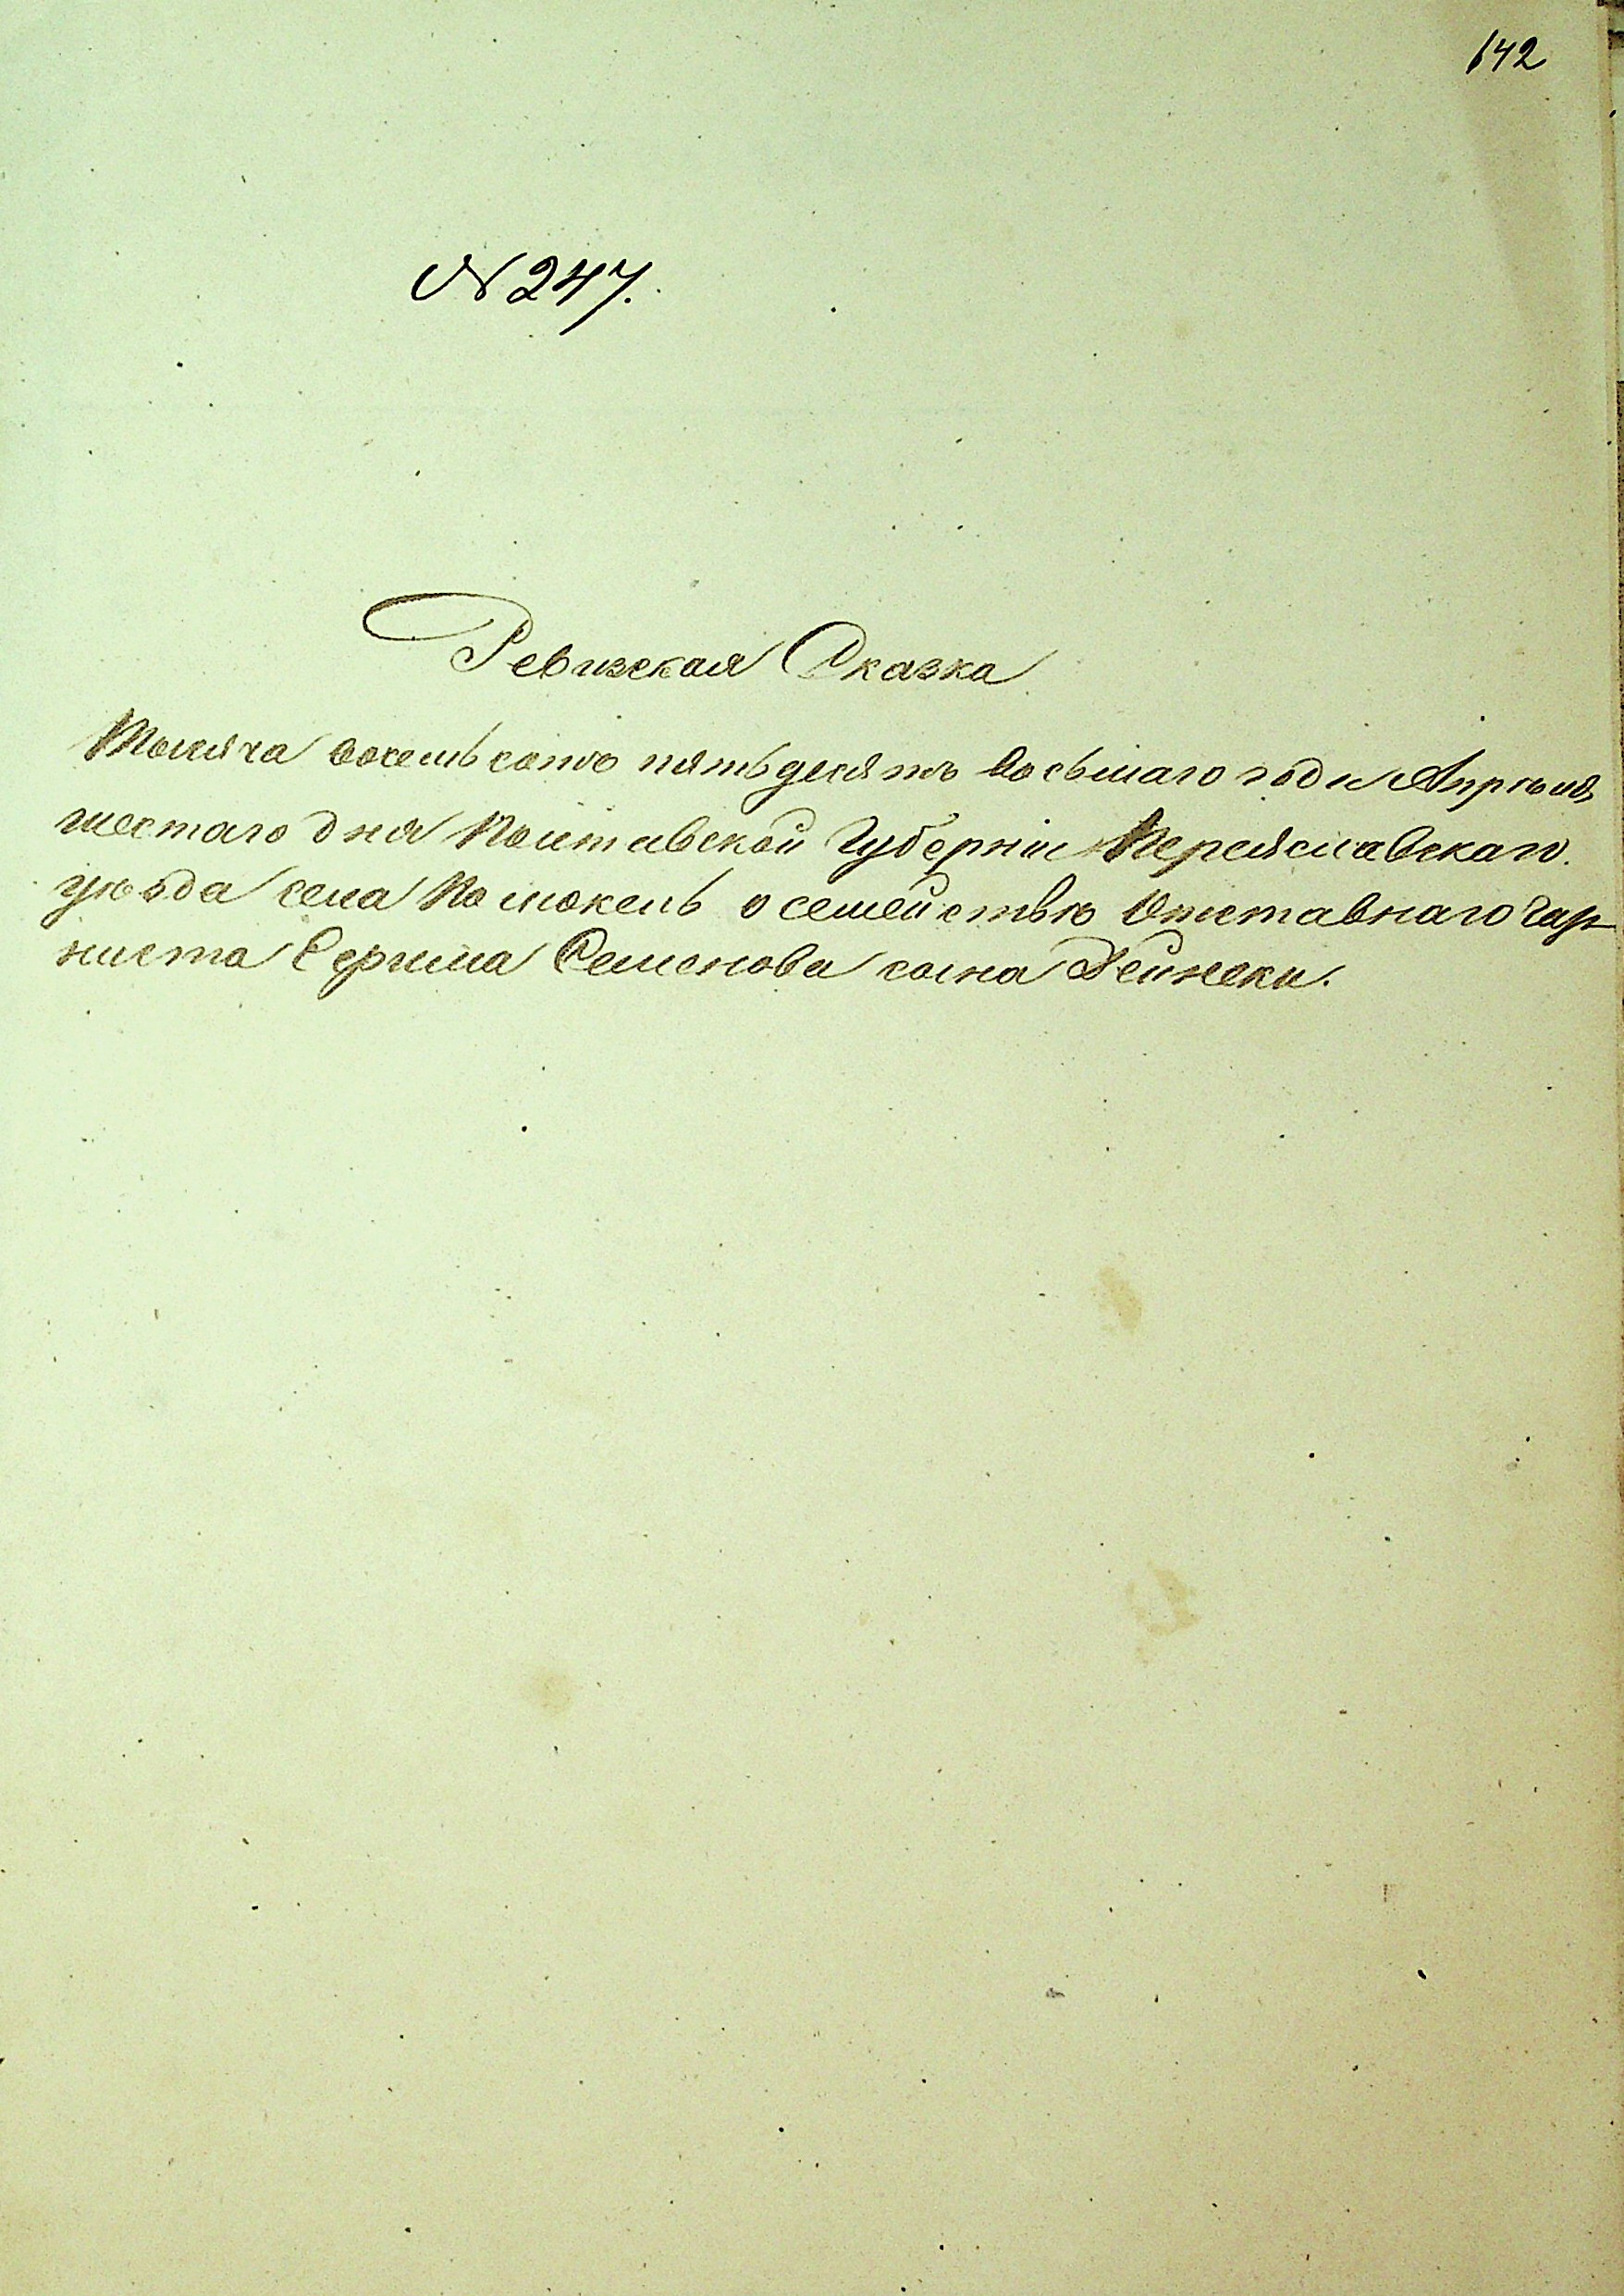 142
№ 247.
Ревизская Сказка
Тысяча восемь сотъ пятьдесятъ восьмаго года Апрѣля
шестаго дня Полтавской Губерніи Переяславскаго
уѣзда села Помокель о семействѣ Отставнаго Гар
ниста Семенова сына Дейнеки.